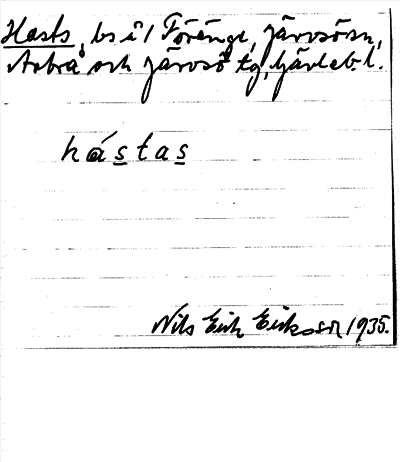 Hasts, bs i 1 Föränge, Järvsö sn,
Arbrå och Järvsö tg, Gävleb. l.
hástas
Nils Erik Eriksson 1935.